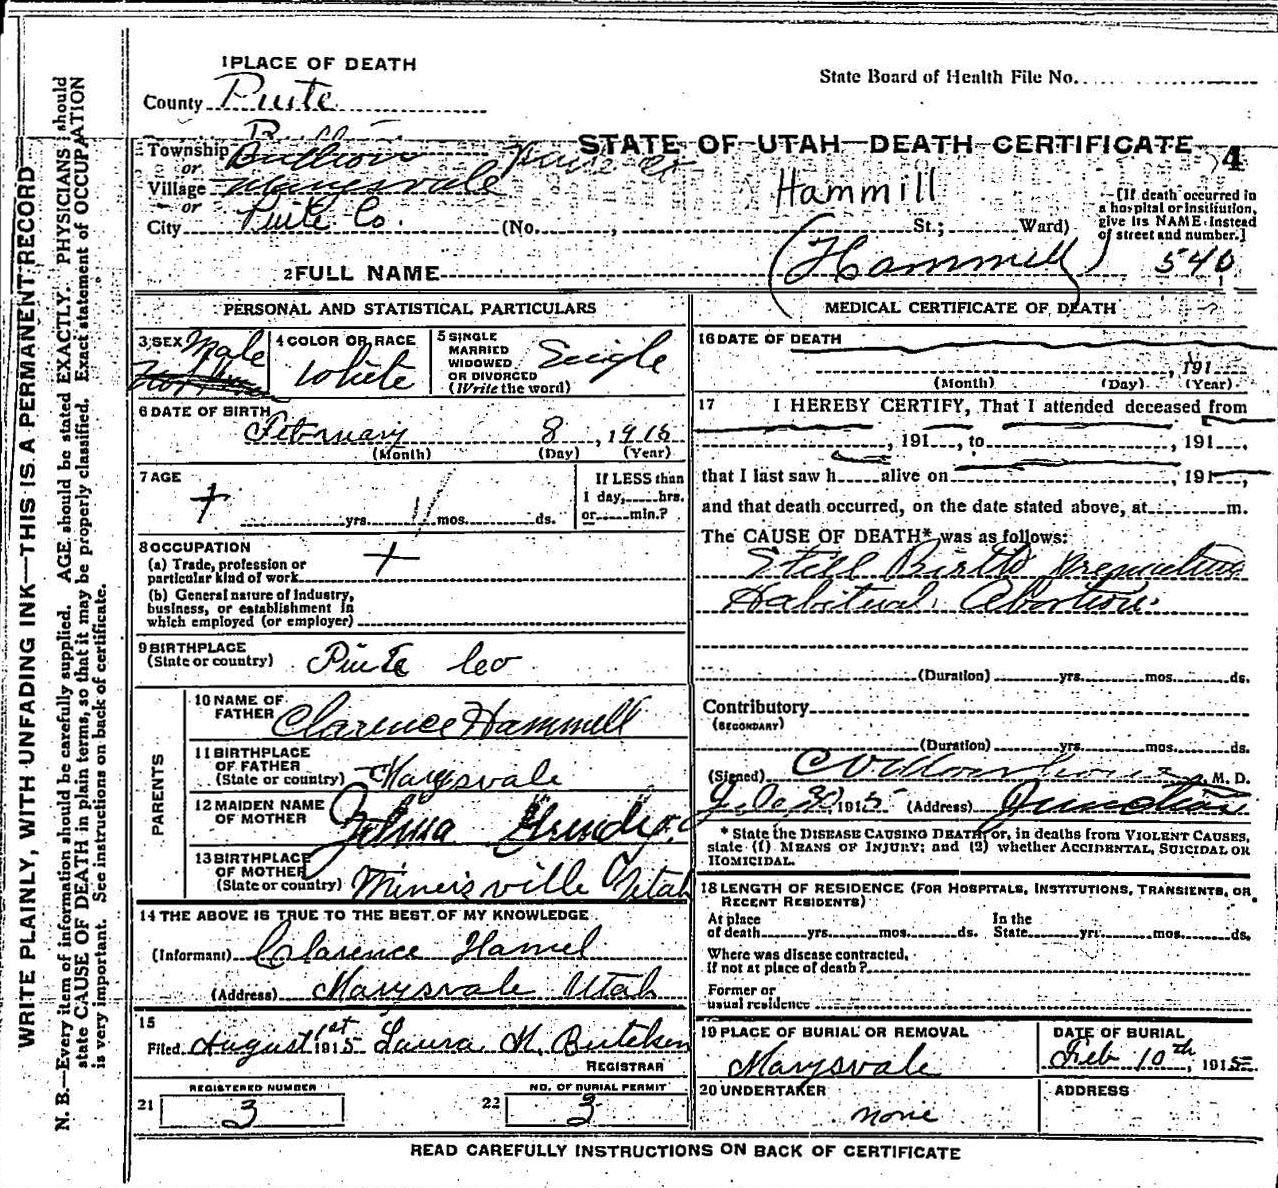 1 PLACE OF DEATH
State Board of Health File No.
County Piute
STATE OF UTAH—DEATH CERTIFICATE 4
Township
or
Village Marysvale
or
City Piute Co. (No. , St.; Ward)
Hammill
[If death occurred in
a hospital or institution,
give its NAME instead
of street and number.]
2 FULL NAME (Hammill) 540
WRITE PLAINLY, WITH UNFADING INK—THIS IS A PERMANENT RECORD
N. B.—Every item of information should be carefully supplied. AGE should be stated EXACTLY. PHYSICIANS should
state CAUSE OF DEATH in plain terms, so that it may be properly classified. Exact statement of OCCUPATION
is very important. See instructions on back of certificate.
PERSONAL AND STATISTICAL PARTICULARS
3 SEX Male
4 COLOR OR RACE White
5 SINGLE
MARRIED
WIDOWED
OR DIVORCED
(Write the word) Single
6 DATE OF BIRTH
February 8, 191
(Month) (Day) (Year)
7 AGE
yrs. mos. ds.
If LESS than
1 day, hrs.
or min.?
8 OCCUPATION
(a) Trade, profession or
particular kind of work
(b) General nature of industry,
business, or establishment in
which employed (or employer)
9 BIRTHPLACE
(State or country) Piute Co
PARENTS
10 NAME OF
FATHER Clarence Hammill
11 BIRTHPLACE
OF FATHER
(State or country) Marysvale
12 MAIDEN NAME
OF MOTHER
13 BIRTHPLACE
OF MOTHER
(State or country) Minersville Utah
14 THE ABOVE IS TRUE TO THE BEST OF MY KNOWLEDGE
(Informant) Clarence Hamel
(Address) Marysvale Utah
15
Filed August 1st 1915 Laura M.
REGISTRAR
REGISTERED NUMBER
21 3
NO. OF BURIAL PERMIT
22 3
MEDICAL CERTIFICATE OF DEATH
16 DATE OF DEATH
, 191
(Month) (Day) (Year)
17 I HEREBY CERTIFY, That I attended deceased from
, 191 , to , 191 ,
that I last saw h alive on , 191 ,
and that death occurred, on the date stated above, at m.
The CAUSE OF DEATH* was as follows:
Still Birth
Habitual Abortion
(Duration) yrs. mos. ds.
Contributory
(SECONDARY)
(Duration) yrs. mos. ds.
(Signed) , M. D.
30, 1915 (Address) Junction
* State the DISEASE CAUSING DEATH, or, in deaths from VIOLENT CAUSES,
state (1) MEANS OF INJURY; and (2) whether ACCIDENTAL, SUICIDAL OR
HOMICIDAL.
18 LENGTH OF RESIDENCE (FOR HOSPITALS, INSTITUTIONS, TRANSIENTS, OR
RECENT RESIDENTS)
At place
of death yrs. mos. ds. In the
State yrs. mos. ds.
Where was disease contracted,
If not at place of death?
Former or
usual residence
19 PLACE OF BURIAL OR REMOVAL
Marysvale
DATE OF BURIAL
Feb 10th, 1915
20 UNDERTAKER
none
ADDRESS
READ CAREFULLY INSTRUCTIONS ON BACK OF CERTIFICATE